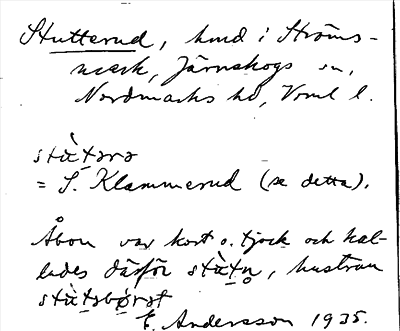 Stutterud, hmd i Ströms-
mark, Järnskogs sn,
Nordmarks hd, Vrml l.
stùtərə
= S. Klammerud (se detta).
Åbon var kort o. tjock och kal-
lades därför stùtn̥, hustrun
stùtəbørst
E. Andersson 1935.